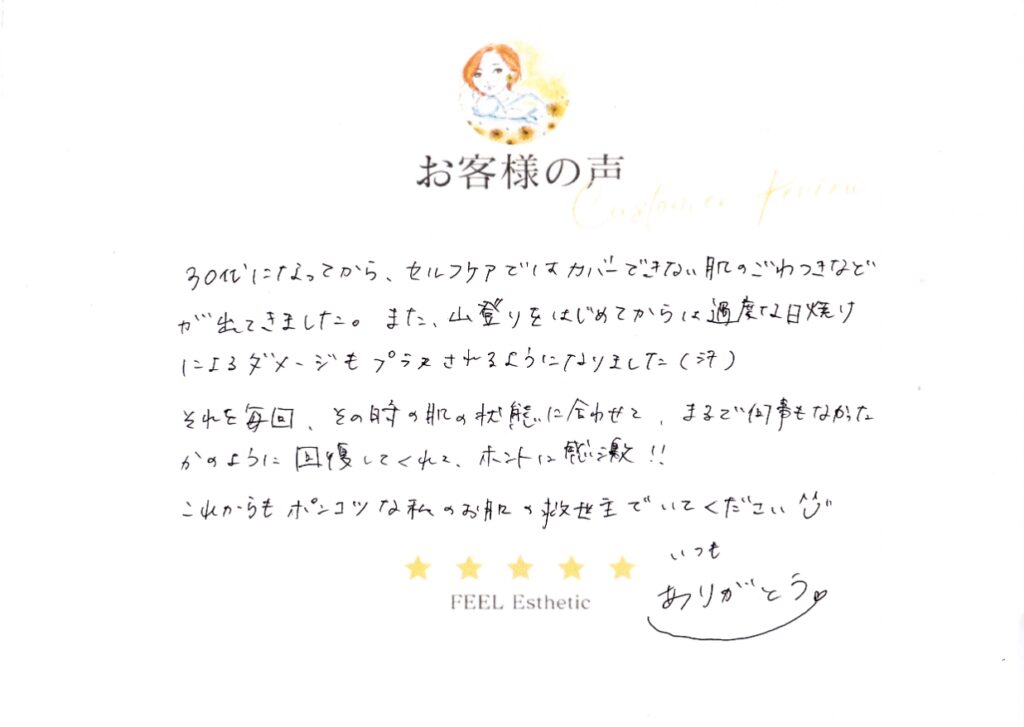 お客様の声
Customer Review
30代になってから、セルフケアではカバーできない肌のごわつきなど
が出てきました。また、山登りをはじめてからは過度な日焼け
によるダメージもプラスされるようになりました(汗)
それを毎回、その時の肌の状態に合わせて、まるで何事もなかった
かのように回復してくれて、ホントに感激!!
これからもポンコツな私のお肌の救世主でいてください^^
いつも
ありがとう♡
FEEL Esthetic